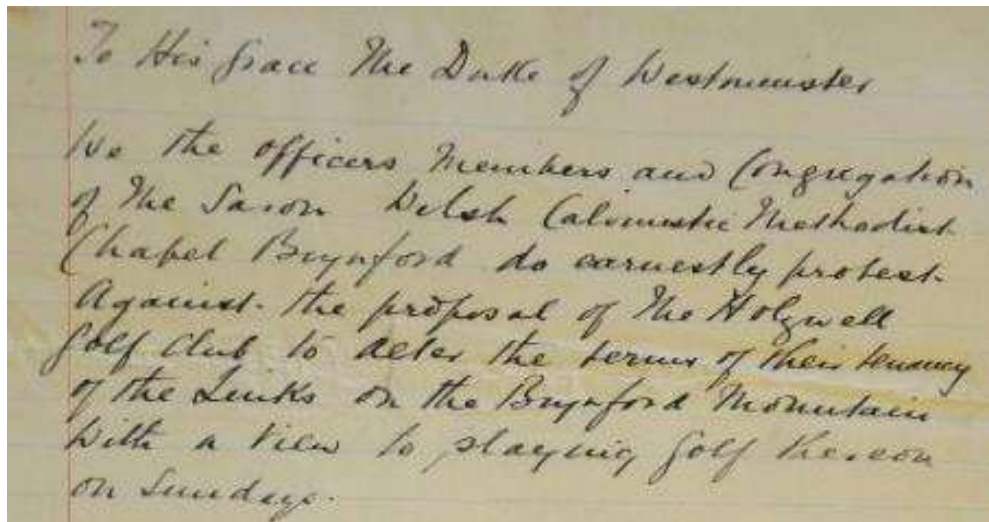 To His Grace The Duke of Westminster
We the officers Members and Congregation
of The Saron Welsh Calvinistic Methodist
Chapel Brynford do earnestly protest
Against the proposal of The Holywell
Golf Club to alter the terms of their tenancy
of the Links on the Brynford Mountain
With a View to playing Golf thereon
on Sundays.